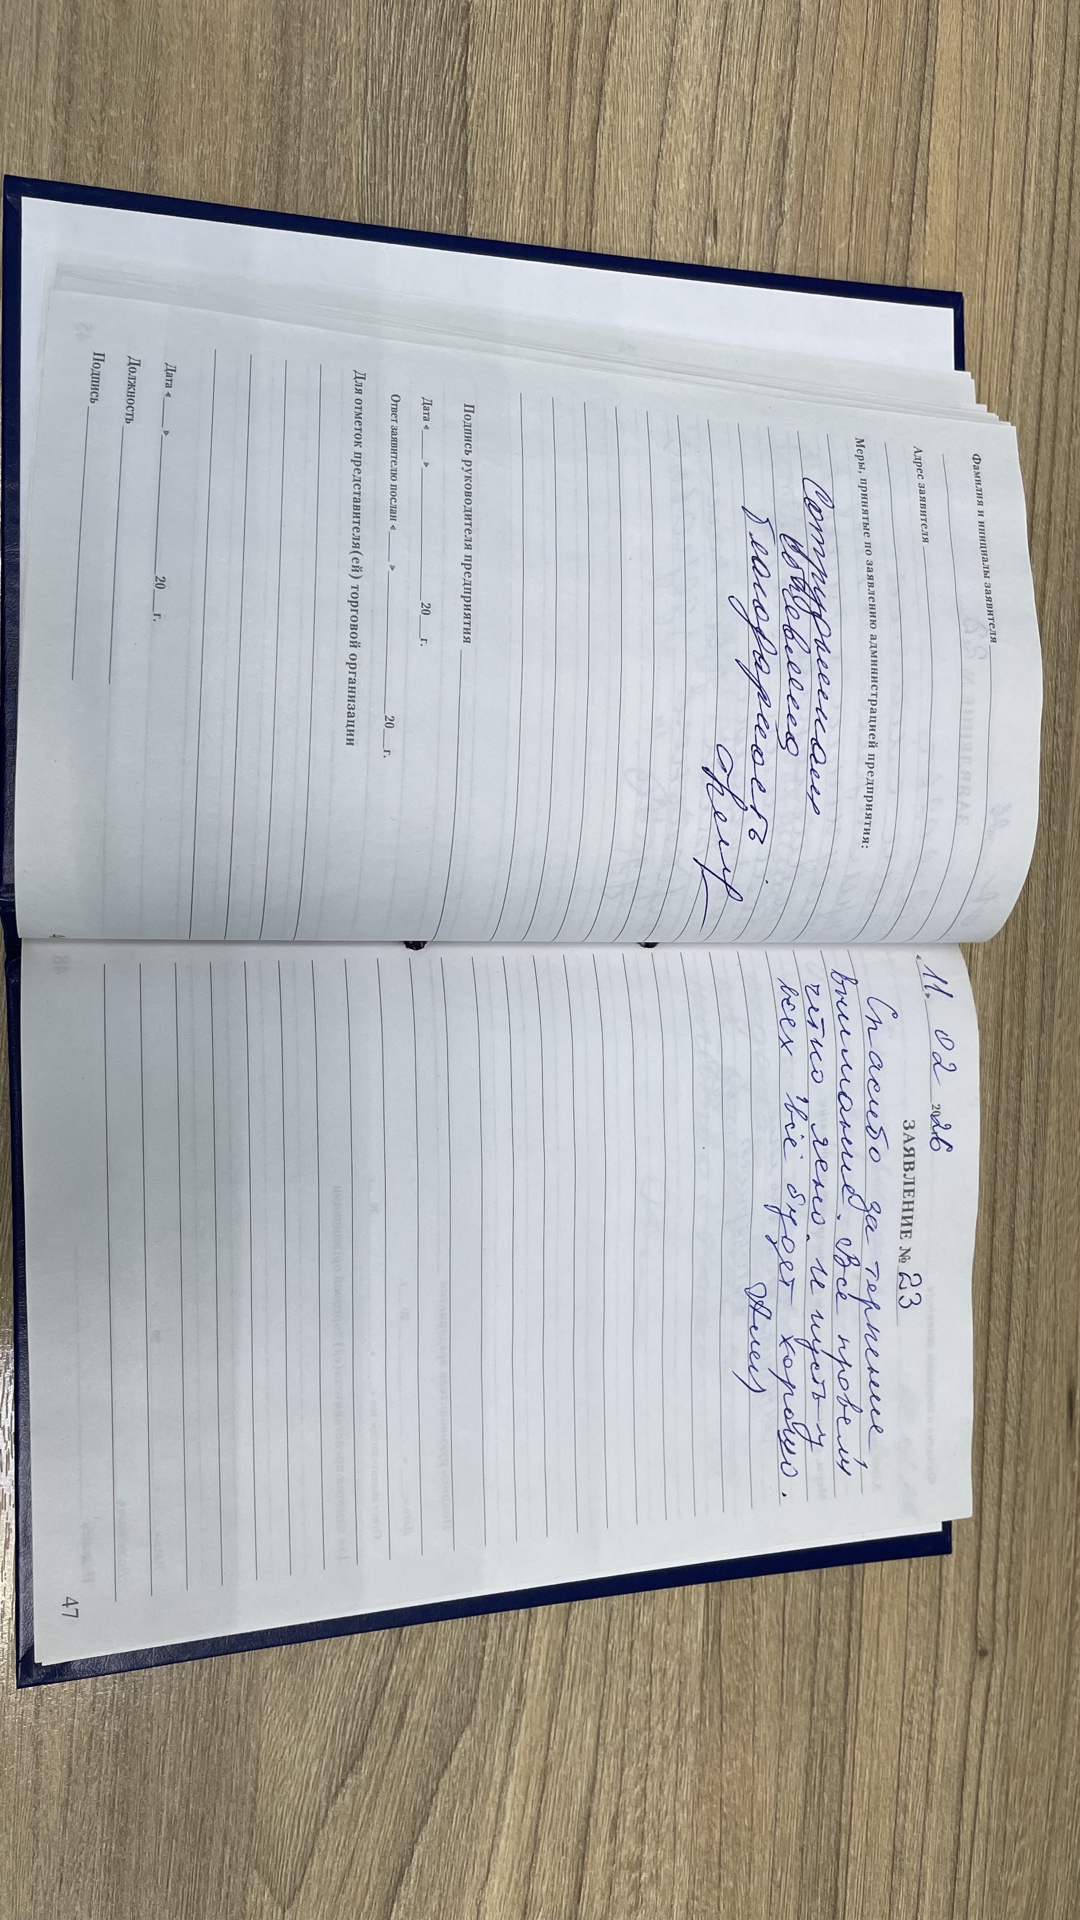 Фамилия и инициалы заявителя
Адрес заявителя
Меры, принятые по заявлению администрацией предприятия:
Сотрудникам
объявлена
благодарность
Подпись руководителя предприятия
Дата « » 20 г.
Ответ заявителю послан « » 20 г.
Для отметок представителя(ей) торговой организации
Дата « » 20 г.
Должность
Подпись
11. 02 2026
ЗАЯВЛЕНИЕ № 23
Спасибо за терпение
внимание. Всё провели
чётко ясно. И пусть у
всех всё будет хорошо.
47